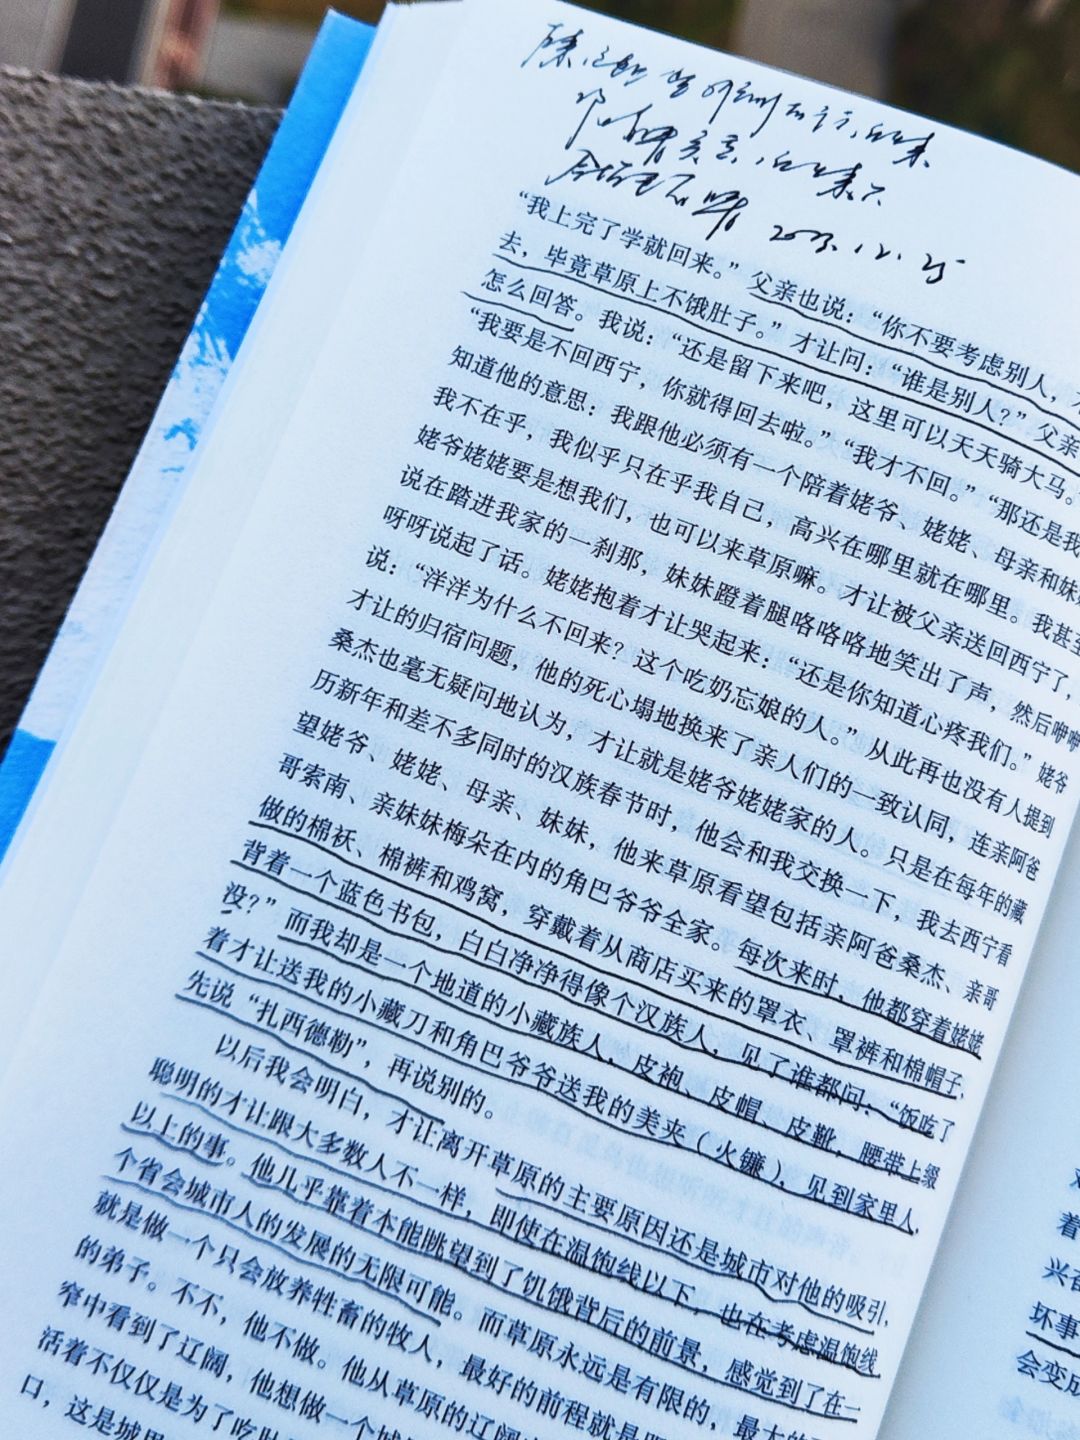 2023.12.25
“我上完了学就回来。”父亲也说：“你不要考虑别人，
去，毕竟草原上不饿肚子。”才让问：“谁是别人？”父亲
怎么回答。我说：“还是留下来吧，这里可以天天骑大马。
“我要是不回西宁，你就得回去啦。”“我才不回。”“那还是我
知道他的意思：我跟他必须有一个陪着姥爷、姥姥、母亲和妹
我不在乎，我似乎只在乎我自己，高兴在哪里就在哪里。我甚至
姥爷姥姥要是想我们，也可以来草原嘛。才让被父亲送回西宁了，
说在踏进我家的一刹那，妹妹蹬着腿咯咯咯地笑出了声，然后咿咿
呀呀说起了话。姥姥抱着才让哭起来：“还是你知道心疼我们。”姥爷
说：“洋洋为什么不回来？这个吃奶忘娘的人。”从此再也没有人提到
才让的归宿问题，他的死心塌地换来了亲人们的一致认同，连亲阿爸
桑杰也毫无疑问地认为，才让就是姥爷姥姥家的人。只是在每年的藏
历新年和差不多同时的汉族春节时，他会和我交换一下，我去西宁看
望姥爷、姥姥、母亲、妹妹，他来草原看望包括亲阿爸桑杰、亲哥
哥索南、亲妹妹梅朵在内的角巴爷爷全家。每次来时，他都穿着姥姥
做的棉袄、棉裤和鸡窝，穿戴着从商店买来的罩衣、罩裤和棉帽子，
背着一个蓝色书包，白白净净得像个汉族人，见了谁都问：“饭吃了
没？”而我却是一个地道的小藏族人，皮袍、皮帽、皮靴，腰带上缀
着才让送我的小藏刀和角巴爷爷送我的美夹（火镰），见到家里人，
先说“扎西德勒”，再说别的。
以后我会明白，才让离开草原的主要原因还是城市对他的吸引，
聪明的才让跟大多数人不一样，即使在温饱线以下，也在考虑温饱线
以上的事。他几乎靠着本能眺望到了饥饿背后的前景，感觉到了在一
个省会城市人的发展的无限可能。而草原永远是有限的，最大的
就是做一个只会放养牲畜的牧人，最好的前程就是
的弟子。不不，他不做。他从草原的辽阔
窄中看到了辽阔，他想做一个城
活着不仅仅是为了吃
口，这是城
着
兴
坏事
会变成